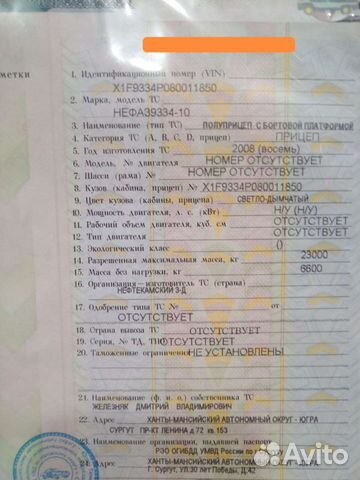 метки
1. Идентификационный номер (VIN)
X1F9334P080011850
2. Марка, модель ТС
НЕФА39334-10
3. Наименование (тип ТС) ПОЛУПРИЦЕП С БОРТОВОЙ ПЛАТФОРМОЙ
4. Категория ТС (A, B, C, D, прицеп) ПРИЦЕП
5. Год изготовления ТС 2008 (восемь)
6. Модель, № двигателя НОМЕР ОТСУТСТВУЕТ
7. Шасси (рама) № НОМЕР ОТСУТСТВУЕТ
8. Кузов (кабина, прицеп) № X1F9334P080011850
9. Цвет кузова (кабины, прицепа) СВЕТЛО-ДЫМЧАТЫЙ
10. Мощность двигателя, л. с. (кВт) Н/У (Н/У)
11. Рабочий объем двигателя, куб. см ОТСУТСТВУЕТ
12. Тип двигателя ОТСУТСТВУЕТ
13. Экологический класс 0
14. Разрешенная максимальная масса, кг 23000
15. Масса без нагрузки, кг 6600
16. Организация-изготовитель ТС (страна)
НЕФТЕКАМСКИЙ З-Д
17. Одобрение типа ТС № от
ОТСУТСТВУЕТ
18. Страна вывоза ТС ОТСУТСТВУЕТ
19. Серия, № ТД, ТПО ОТСУТСТВУЕТ
20. Таможенные ограничения НЕ УСТАНОВЛЕНЫ
21. Наименование (ф. и. о.) собственника ТС
ЖЕЛЕЗНЯК ДМИТРИЙ ВЛАДИМИРОВИЧ
22. Адрес ХАНТЫ-МАНСИЙСКИЙ АВТОНОМНЫЙ ОКРУГ - ЮГРА
СУРГУТ ПР-КТ ЛЕНИНА д.72 кв.153
23. Наименование организации, выдавшей паспорт
РЭО ОГИБДД УМВД России по г.
24. Адрес ХАНТЫ-МАНСИЙСКИЙ АВТОНОМНЫЙ ОКРУГ - ЮГРА
Г. Сургут, УЛ.30 лет Победы, Д.42
Avito